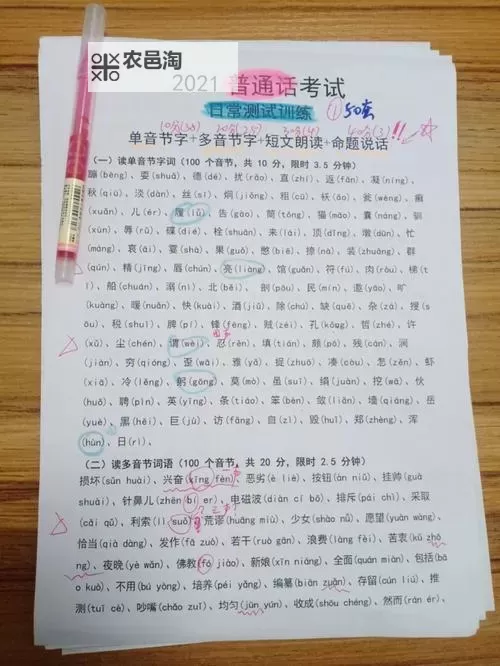 农邑淘
2021 普通话考试
日常测试训练 ①50套
单音节字+多音节字+短文朗读+命题说话!!
(一) 读单音节字词 (100 个音节, 共 10 分, 限时 3.5 分钟)
蹦(bèng)、耍(shuǎ)、德(dé)、扰(rǎo)、直(zhí)、返(fǎn)、凝(níng)、
秋(qiū)、淡(dàn)、丝(sī)、炯(jiǒng)、粗(cū)、袄(ǎo)、瓮(wèng)、癣
(xuǎn)、儿(ér)、履(lǚ)、告(gào)、筒(tǒng)、猫(māo)、囊(náng)、驯
(xùn)、辱(rǔ)、碟(dié)、栓(shuān)、来(lái)、顶(dǐng)、墩(dūn)、忙
(máng)、哀(āi)、霎(shà)、果(guǒ)、憋(biē)、捺(nà)、装(zhuāng)、群
(qún)、精(jīng)、唇(chún)、亮(liàng)、馆(guǎn)、符(fú)、肉(ròu)、梯(t
ī)、船(chuán)、溺(nì)、北(běi)、剖(pōu)、民(mín)、邀(yāo)、旷
(kuàng)、暖(nuǎn)、快(kuài)、酒(jiǔ)、除(chú)、缺(quē)、杂(zá)、搜(s
ōu)、税(shuì)、脾(pí)、锋(fēng)、贼(zéi)、孔(kǒng)、哲(zhé)、许
(xǔ)、尘(chén)、谓(wèi)、忍(rěn)、填(tián)、颇(pō)、残(cán)、涧
(jiàn)、穷(qióng)、歪(wāi)、雅(yǎ)、捉(zhuō)、凑(còu)、怎(zěn)、虾
(xiā)、冷(lěng)、躬(gōng)、莫(mò)、虽(suī)、绢(juàn)、挖(wā)、伙
(huǒ)、聘(pìn)、英(yīng)、条(tiáo)、笨(bèn)、敛(liǎn)、墙(qiáng)、岳
(yuè)、黑(hēi)、巨(jù)、访(fǎng)、自(zì)、毁(huǐ)、郑(zhèng)、浑
(hún)、日(rì)。
(二) 读多音节词语 (100 个音节, 共 20 分, 限时 2.5 分钟)
损坏(sǔn huài)、兴奋(xīng fèn)、恶劣(è liè)、按钮(àn niǔ)、挂帅(guà
shuài)、针鼻儿(zhēn bí er)、电磁波(diàn cí bō)、排斥(pái chì)、采取
(cǎi qǔ)、利索(lì suǒ)、荒谬(huāng miù)、少女(shào nǚ)、愿望(yuàn wàng)、
恰当(qià dàng)、发作(fā zuò)、若干(ruò gān)、浪费(làng fèi)、苦衷(kǔ zhō
ng)、夜晚(yè wǎn)、佛教(fó jiào)、新娘(xīn niáng)、全面(quán miàn)、包括(bā
o kuò)、不用(bú yòng)、培养(péi yǎng)、编纂(biān zuǎn)、存留(cún liú)、推
测(tuī cè)、吵嘴(chǎo zuǐ)、均匀(jūn yún)、收成(shōu chéng)、然而(rán ér)、